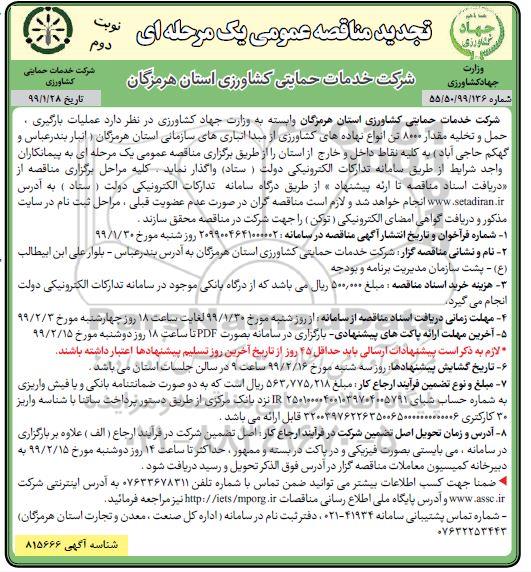 تجدید مناقصه عمومی یک مرحله ای
نوبت دوم
شرکت خدمات حمایتی کشاورزی استان هرمزگان
وزارت جهادکشاورزی
شرکت خدمات حمایتی کشاورزی
شماره ۵۵/۵۰/۹۹/۱۳۶
تاریخ ۹۹/۱/۲۸
شرکت خدمات حمایتی کشاورزی استان هرمزگان وابسته به وزارت جهاد کشاورزی در نظر دارد عملیات بارگیری ،
حمل و تخلیه مقدار ۸۰۰۰ تن انواع نهاده های کشاورزی از مبدا انباری های سازمانی استان هرمزگان ( انبار بندرعباس و
گهکم حاجی آباد ) به کلیه نقاط داخل و خارج از استان را از طریق برگزاری مناقصه عمومی یک مرحله ای به پیمانکاران
واجد شرایط از طریق سامانه تدارکات الکترونیکی دولت ( ستاد) واگذار نماید . کلیه مراحل برگزاری مناقصه از
«دریافت اسناد مناقصه تا ارئه پیشنهاد » از طریق درگاه سامانه تدارکات الکترونیکی دولت ( ستاد ) به آدرس
www.setadiran.ir انجام خواهد شد و لازم است مناقصه گران در صورت عدم عضویت قبلی ، مراحل ثبت نام در سایت
مذکور و دریافت گواهی امضای الکترونیکی ( توکن ) را جهت شرکت در مناقصه محقق سازند .
۱- شماره فرآخوان و تاریخ انتشار آگهی مناقصه در سامانه : ۲۰۹۹۰۰۴۶۴۱۰۰۰۰۰۲ روز شنبه مورخ ۹۹/۱/۳۰
۲- نام و نشانی مناقصه گزار : شرکت خدمات حمایتی کشاورزی استان هرمزگان به آدرس بندرعباس - بلوار علی ابن ابیطالب
(ع) - پشت سازمان مدیریت برنامه و بودجه
۳- هزینه خرید اسناد مناقصه : مبلغ ۵۰۰,۰۰۰ ریال می باشد که از درگاه بانکی موجود در سامانه تدارکات الکترونیکی دولت
انجام می گیرد.
۴- مهلت زمانی دریافت اسناد مناقصه از سامانه : از روز شنبه مورخ ۹۹/۱/۳۰ لغایت ساعت ۱۸ روز چهارشنبه مورخ ۹۹/۲/۳
۵- آخرین مهلت ارائه پاکت های پیشنهادی- بارگزاری در سامانه بصورت PDF تا ساعت ۱۸ روز دوشنبه مورخ ۹۹/۲/۱۵
*لازم به ذکر است پیشنهادات ارسالی باید حداقل ۴۵ روز از تاریخ آخرین روز تسلیم پیشنهادها اعتبار داشته باشند.
۶- تاریخ گشایش پیشنهادها: روز سه شنبه مورخ ۹۹/۲/۱۶ ساعت ۹ در سالن جلسات استان می باشد .
۷- مبلغ و نوع تضمین فرآیند ارجاع کار : مبلغ ۵۶۳,۷۷۵,۲۱۸ ریال است که به دو صورت ضمانتنامه بانکی و یا فیش واریزی
به شماره حساب شبای IR نزد بانک مرکزی از طریق دستور پرداخت ساتنا با شناسه واریز
۳۰ کارکتری قابل ارائه می باشد .
۸- آدرس و زمان تحویل اصل تضمین شرکت در فرآیند ارجاع کار : اصل تضمین شرکت در فرآیند ارجاع ( الف ) علاوه بر بارگزاری
در سامانه ، می بایستی بصورت فیزیکی و در پاکت در بسته و ممهور ، حداکثر تا ساعت ۱۴ روز دوشنبه مورخ ۹۹/۲/۱۵ به
دبیرخانه کمیسیون معاملات مناقصه گزار در آدرس فوق الذکر تحویل و رسید دریافت شود .
ضمنا جهت کسب اطلاعات بیشتر می توانید ضمن تماس با شماره تلفن ۰۷۶۳۳۶۷۸۳۱۱ به آدرس اینترنتی شرکت
www.assc.ir و آدرس پایگاه ملی اطلاع رسانی مناقصات http://iets/mporg.ir نیز مراجعه فرمائید .
- شماره تماس پشتیبانی سامانه ۴۱۹۳۴-۰۲۱ ، دفتر ثبت نام در سامانه ( اداره کل صنعت ، معدن و تجارت استان هرمزگان)
۰۷۶۳۲۲۵۳۴۴۳
شناسه آگهی ۸۱۵۶۶۶